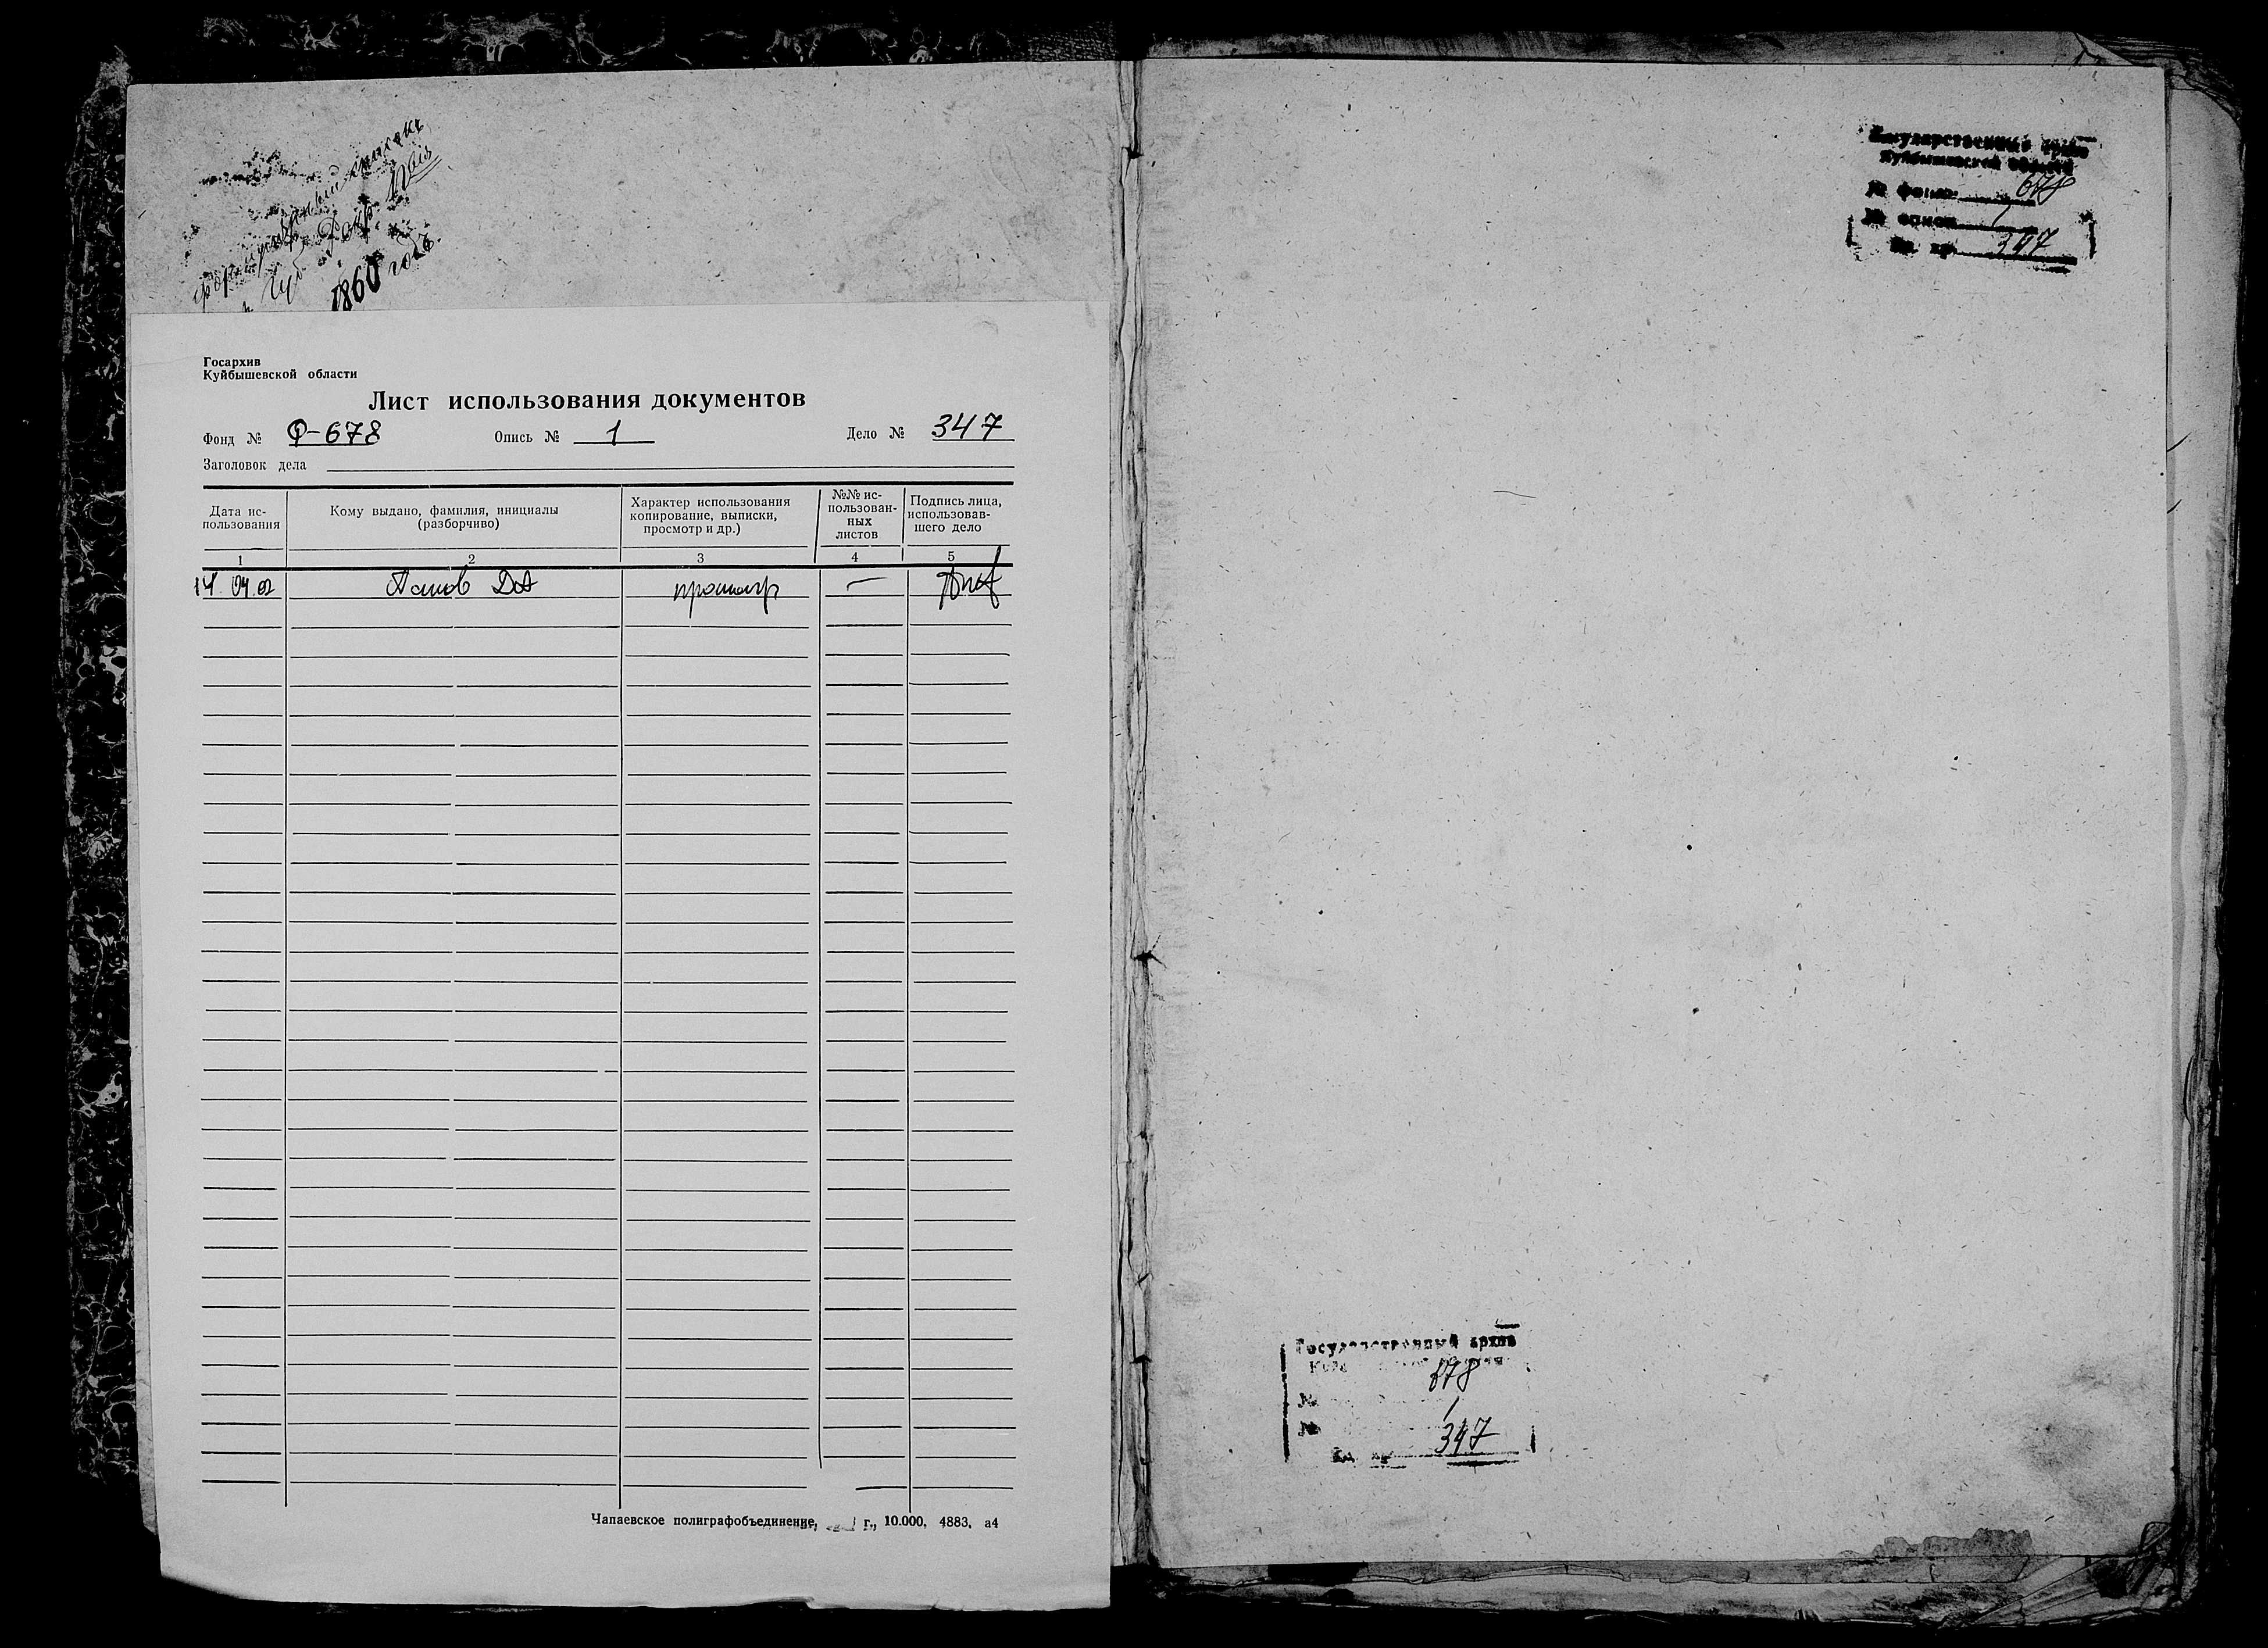 формулярный списокъ
1860 годъ.
Госархив
Куйбышевской области
Лист использования документов
Фонд № Ф-678 Опись № 1 Дело № 347
Заголовок дела
Дата ис-
пользования
Кому выдано, фамилия, инициалы
(разборчиво)
Характер использования
копирование, выписки,
просмотр и др.)
№№ ис-
пользован-
ных
листов
Подпись лица,
использовав-
шего дело
1 2 3 4 5
14.04.02 ДА просмотр —
Чапаевское полиграфобъединение, г., 10.000, 4883, а4
Государственный архив
Куйбышевской области
№ фонда 678
№ описи 1
Ед. хр. 347
Государственный архив
678
№ 1
№
Ед. хр. 347